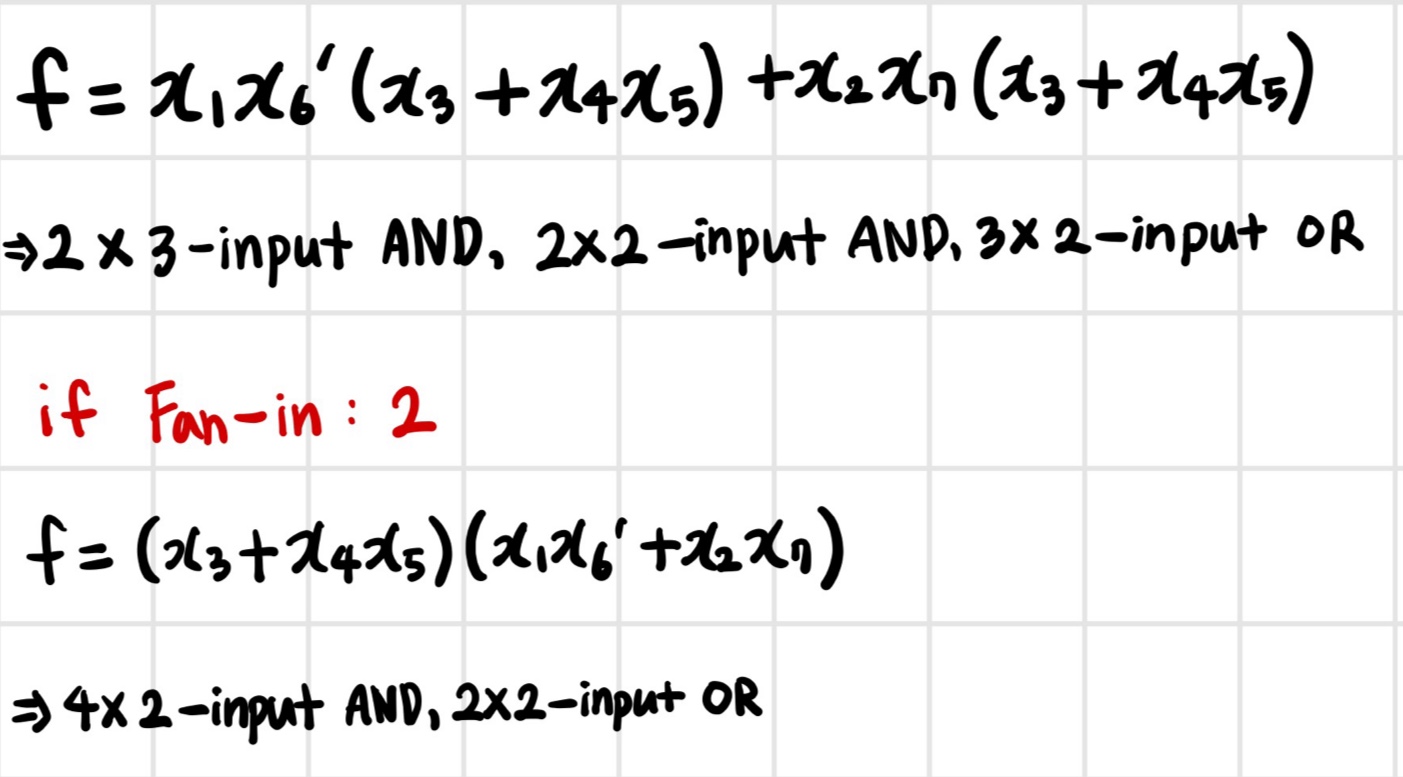 f = x₁x₆'(x₃ + x₄x₅) + x₂x₇(x₃ + x₄x₅)
⇒ 2 × 3-input AND, 2×2-input AND, 3×2-input OR
if Fan-in : 2
f = (x₃ + x₄x₅)(x₁x₆' + x₂x₇)
⇒ 4×2-input AND, 2×2-input OR